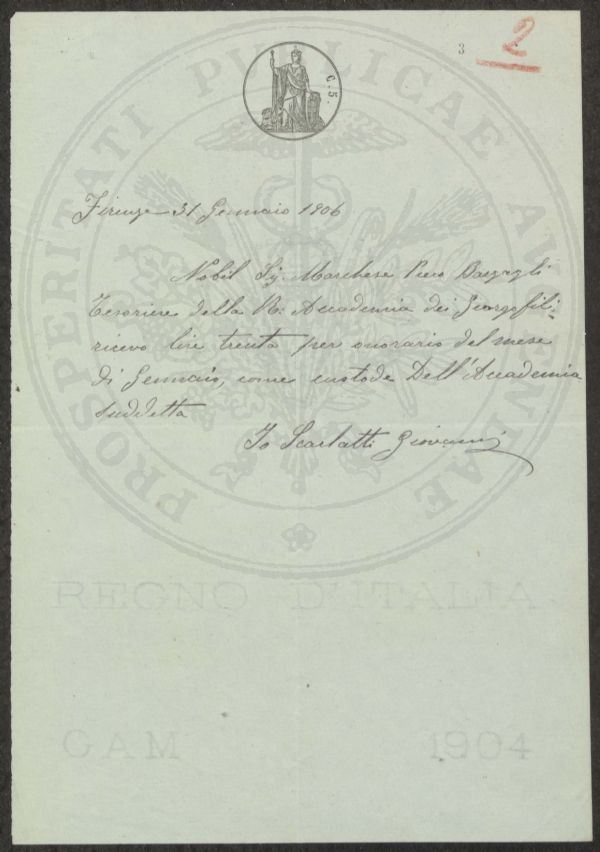 3
2
C. 5.
PROSPERITATI PUBLICAE AUGENDAE
Firenze 31 Gennaio 1906
Nobil Sig. Marchese Piero Bargagli
Tesoriere della R: Accademia dei Georgofili:
ricevo lire trenta per onorario del mese
di Gennaio, come custode Dell'Accademia
suddetta
Io Scarlatti Giovanni
REGNO D'ITALIA
GAM 1904